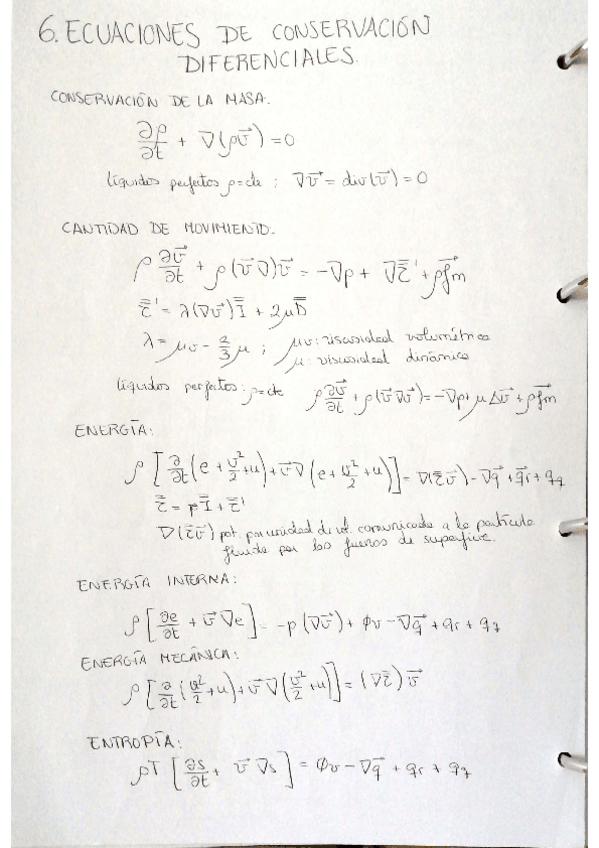 6. ECUACIONES DE CONSERVACIÓN
DIFERENCIALES.
CONSERVACIÓN DE LA MASA.
∂ρ/∂t + ∇(ρv⃗) = 0
líquidos perfectos ρ=cte ; ∇v⃗ = div(v⃗) = 0
CANTIDAD DE MOVIMIENTO.
ρ ∂v⃗/∂t + ρ(v⃗∇)v⃗ = -∇p + ∇τ̿' + ρf⃗m
τ̿' = λ(∇v⃗)I̿ + 2μD̿
λ = μv - 2/3 μ ; μv: viscosidad volumétrica
μ: viscosidad dinámica
líquidos perfectos: ρ=cte ρ ∂v⃗/∂t + ρ(v⃗∇v⃗) = -∇p + μΔv⃗ + ρf⃗m
ENERGÍA:
ρ[∂/∂t(e + v²/2 + u) + v⃗∇(e + v²/2 + u)] = ∇(τ̿v⃗) - ∇q⃗ + q⃗r + qq
τ̿ = pI̿ + τ̿'
∇(τ̿v⃗) pot. por unidad de vol. comunicada a la partícula
fluida por las fuerzas de superficie.
ENERGÍA INTERNA:
ρ[∂e/∂t + v⃗∇e] = -p(∇v⃗) + ϕv - ∇q⃗ + qr + qq
ENERGÍA MECÁNICA:
ρ[∂/∂t(v²/2 + u) + v⃗∇(v²/2 + u)] = (∇τ̿)v⃗
ENTROPÍA:
ρT[∂s/∂t + v⃗∇s] = ϕv - ∇q⃗ + qr + qq